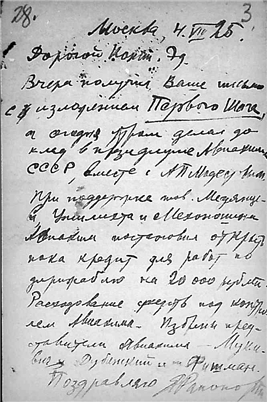 28.
3
Москва, 4.VII 25
Дорогой Конст. Эд.
Вчера получил Ваше письмо
с изложением Первого Шага,
а сегодня утром делал до
клад в президиуме Авиахима
СССР, вместе с
При поддержке тов.
и Уншлихта и Мехоношина
Авиахим постановил открыть
пока кредит для работ по
дирижаблю на 20 000 рублей.
Расходование средств под контро
лем Авиахима. Избраны пред
ставители Авиахима — Муки-
Дубенский и Фишман.
Поздравляю